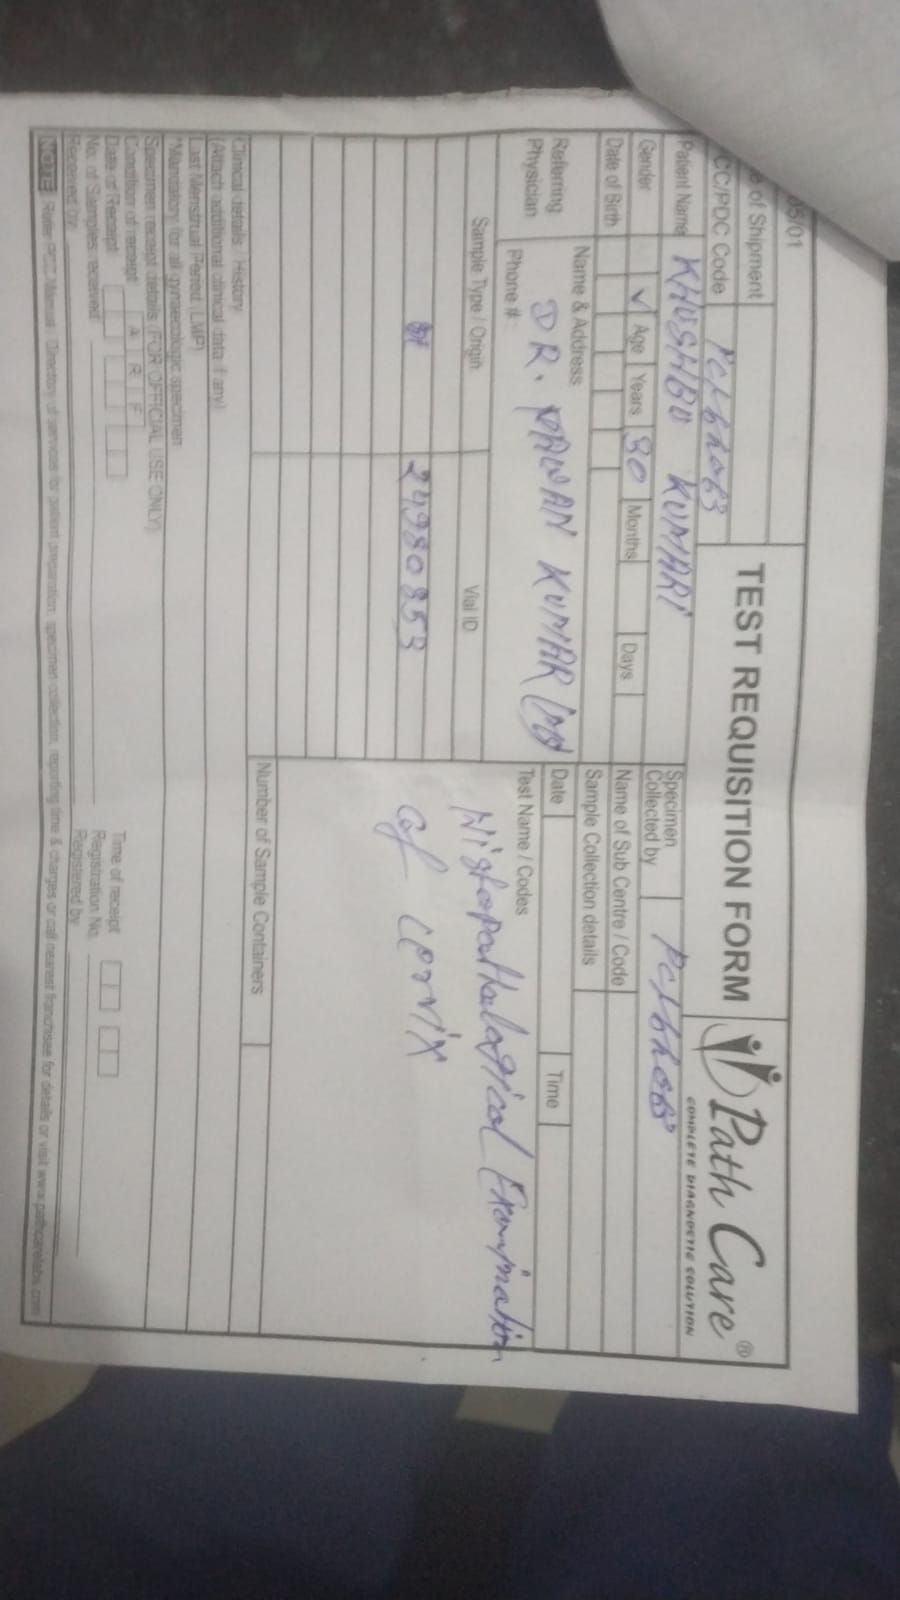 05/01
e of Shipment
CC/PDC Code
TEST REQUISITION FORM
Path Care®
COMPLETE DIAGNOSTIC SOLUTION
Patient Name KHUSHBU KUMARI
Specimen
Collected by
Gender ✓ Age Years 30 Months Days
Name of Sub Centre / Code
Date of Birth
Sample Collection details
Referring
Physician
Name & Address
DR. PAWAN KUMAR
Phone # :
Date Time
Test Name / Codes
Histopathalogical Examination
of cervix
Sample Type / Origin Vial ID
24980853
Number of Sample Containers
Clinical details / History
(Attach additional clinical data if any)
Last Menstrual Period (LMP)
*Mandatory for all gynaecologic specimen
Specimen receipt details (FOR OFFICIAL USE ONLY)
Condition of receipt A R F
Date of Receipt Time of receipt
No. of Samples received Registration No.
Received by Registered by
NOTE Refer PCC Manual / Directory of services for patient preparation, specimen collection, reporting time & charges or call nearest franchisee for details or visit www.pathcarelabs.com